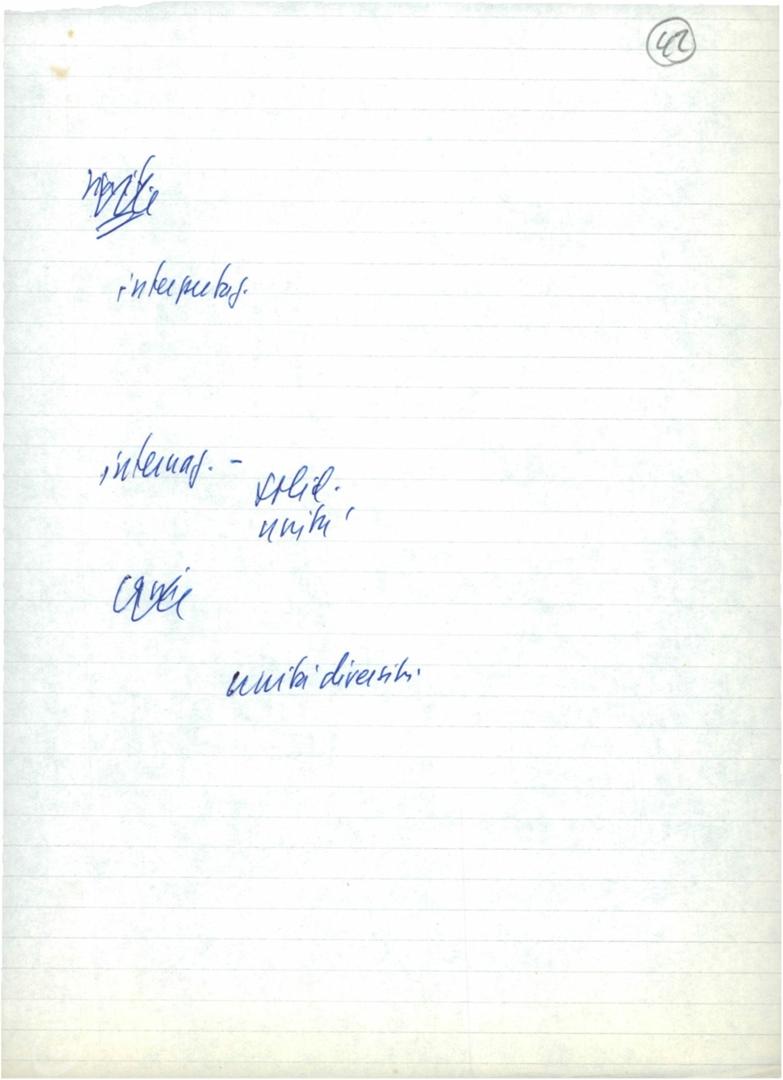 42
interpretaz.
internaz. -
solid.
unità
unità diversità.